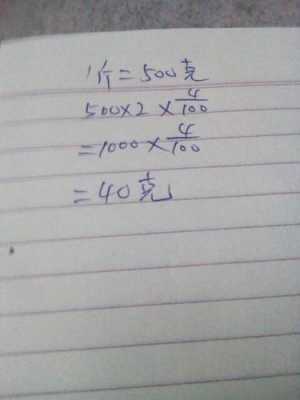 1斤=500克
500×2×4/100
=1000×4/100
=40克